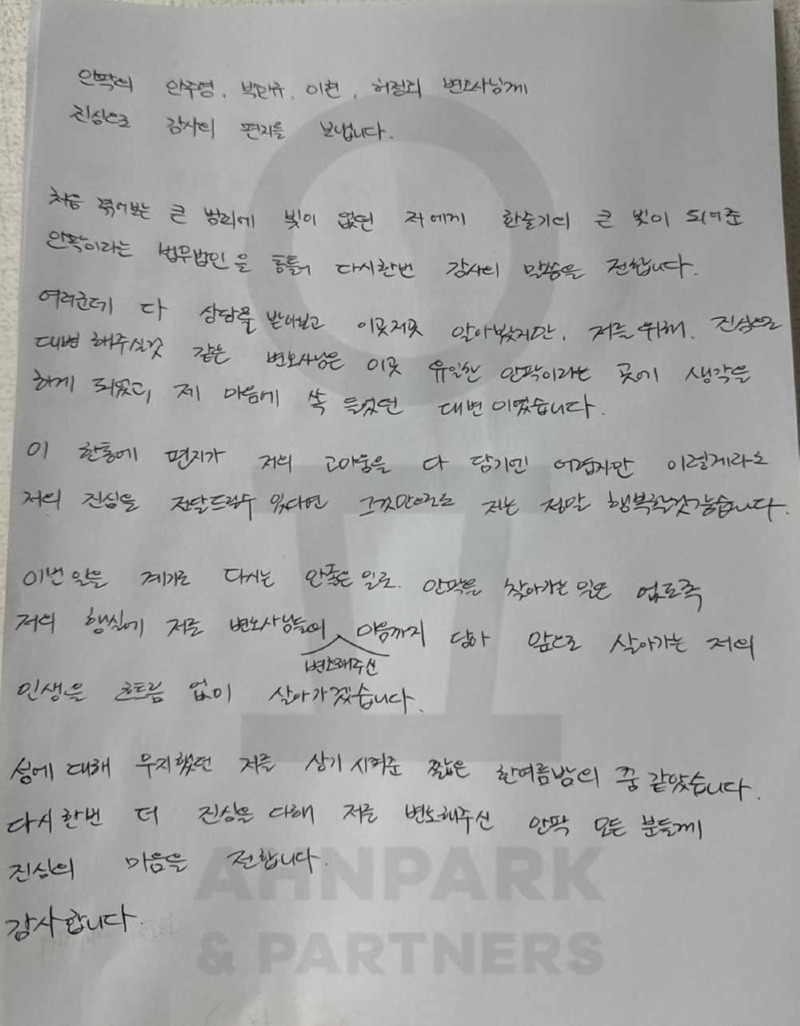 안팍의 안주영, 박민규, 이헌, 허정회 변호사님께
진심으로 감사의 편지를 보냅니다.
처음 겪어보는 큰 벌리에 빛이 없던 저에게 한줄기의 큰 빛이 되어준
안팍이라는 법무법인을 통틀어 다시한번 감사의 말씀을 전합니다.
여러군데 다 상담을 받아보고 이곳저곳 알아봤지만, 저를 위해, 진심으로
대변 해주실것 같은 변호사님은 이곳 유일한 안팍이라는 곳에 생각을
하게 되었고, 제 마음에 쏙 들었던 대변이였습니다.
이 한통에 편지가 저의 고마움을 다 담기엔 어렵지만 이렇게라도
저의 진심을 전달드릴수 있다면 그것만으로도 저는 정말 행복할것같습니다.
이번 일을 계기로 다시는 안좋은 일로 안팍을 찾아가는 일은 없도록
저의 행실에 저를 변호사님들의 마음까지 담아 앞으로 살아가는 저의
변호해주신
인생을 흐트름 없이 살아가겠습니다.
성에 대해 무지했던 저를 상기 시켜준 짧은 한여름밤의 꿈 같았습니다.
다시한번 더 진심을 다해 저를 변호해주신 안팍 모든 분들께
진심의 마음을 전합니다.
감사합니다.
AHNPARK
& PARTNERS